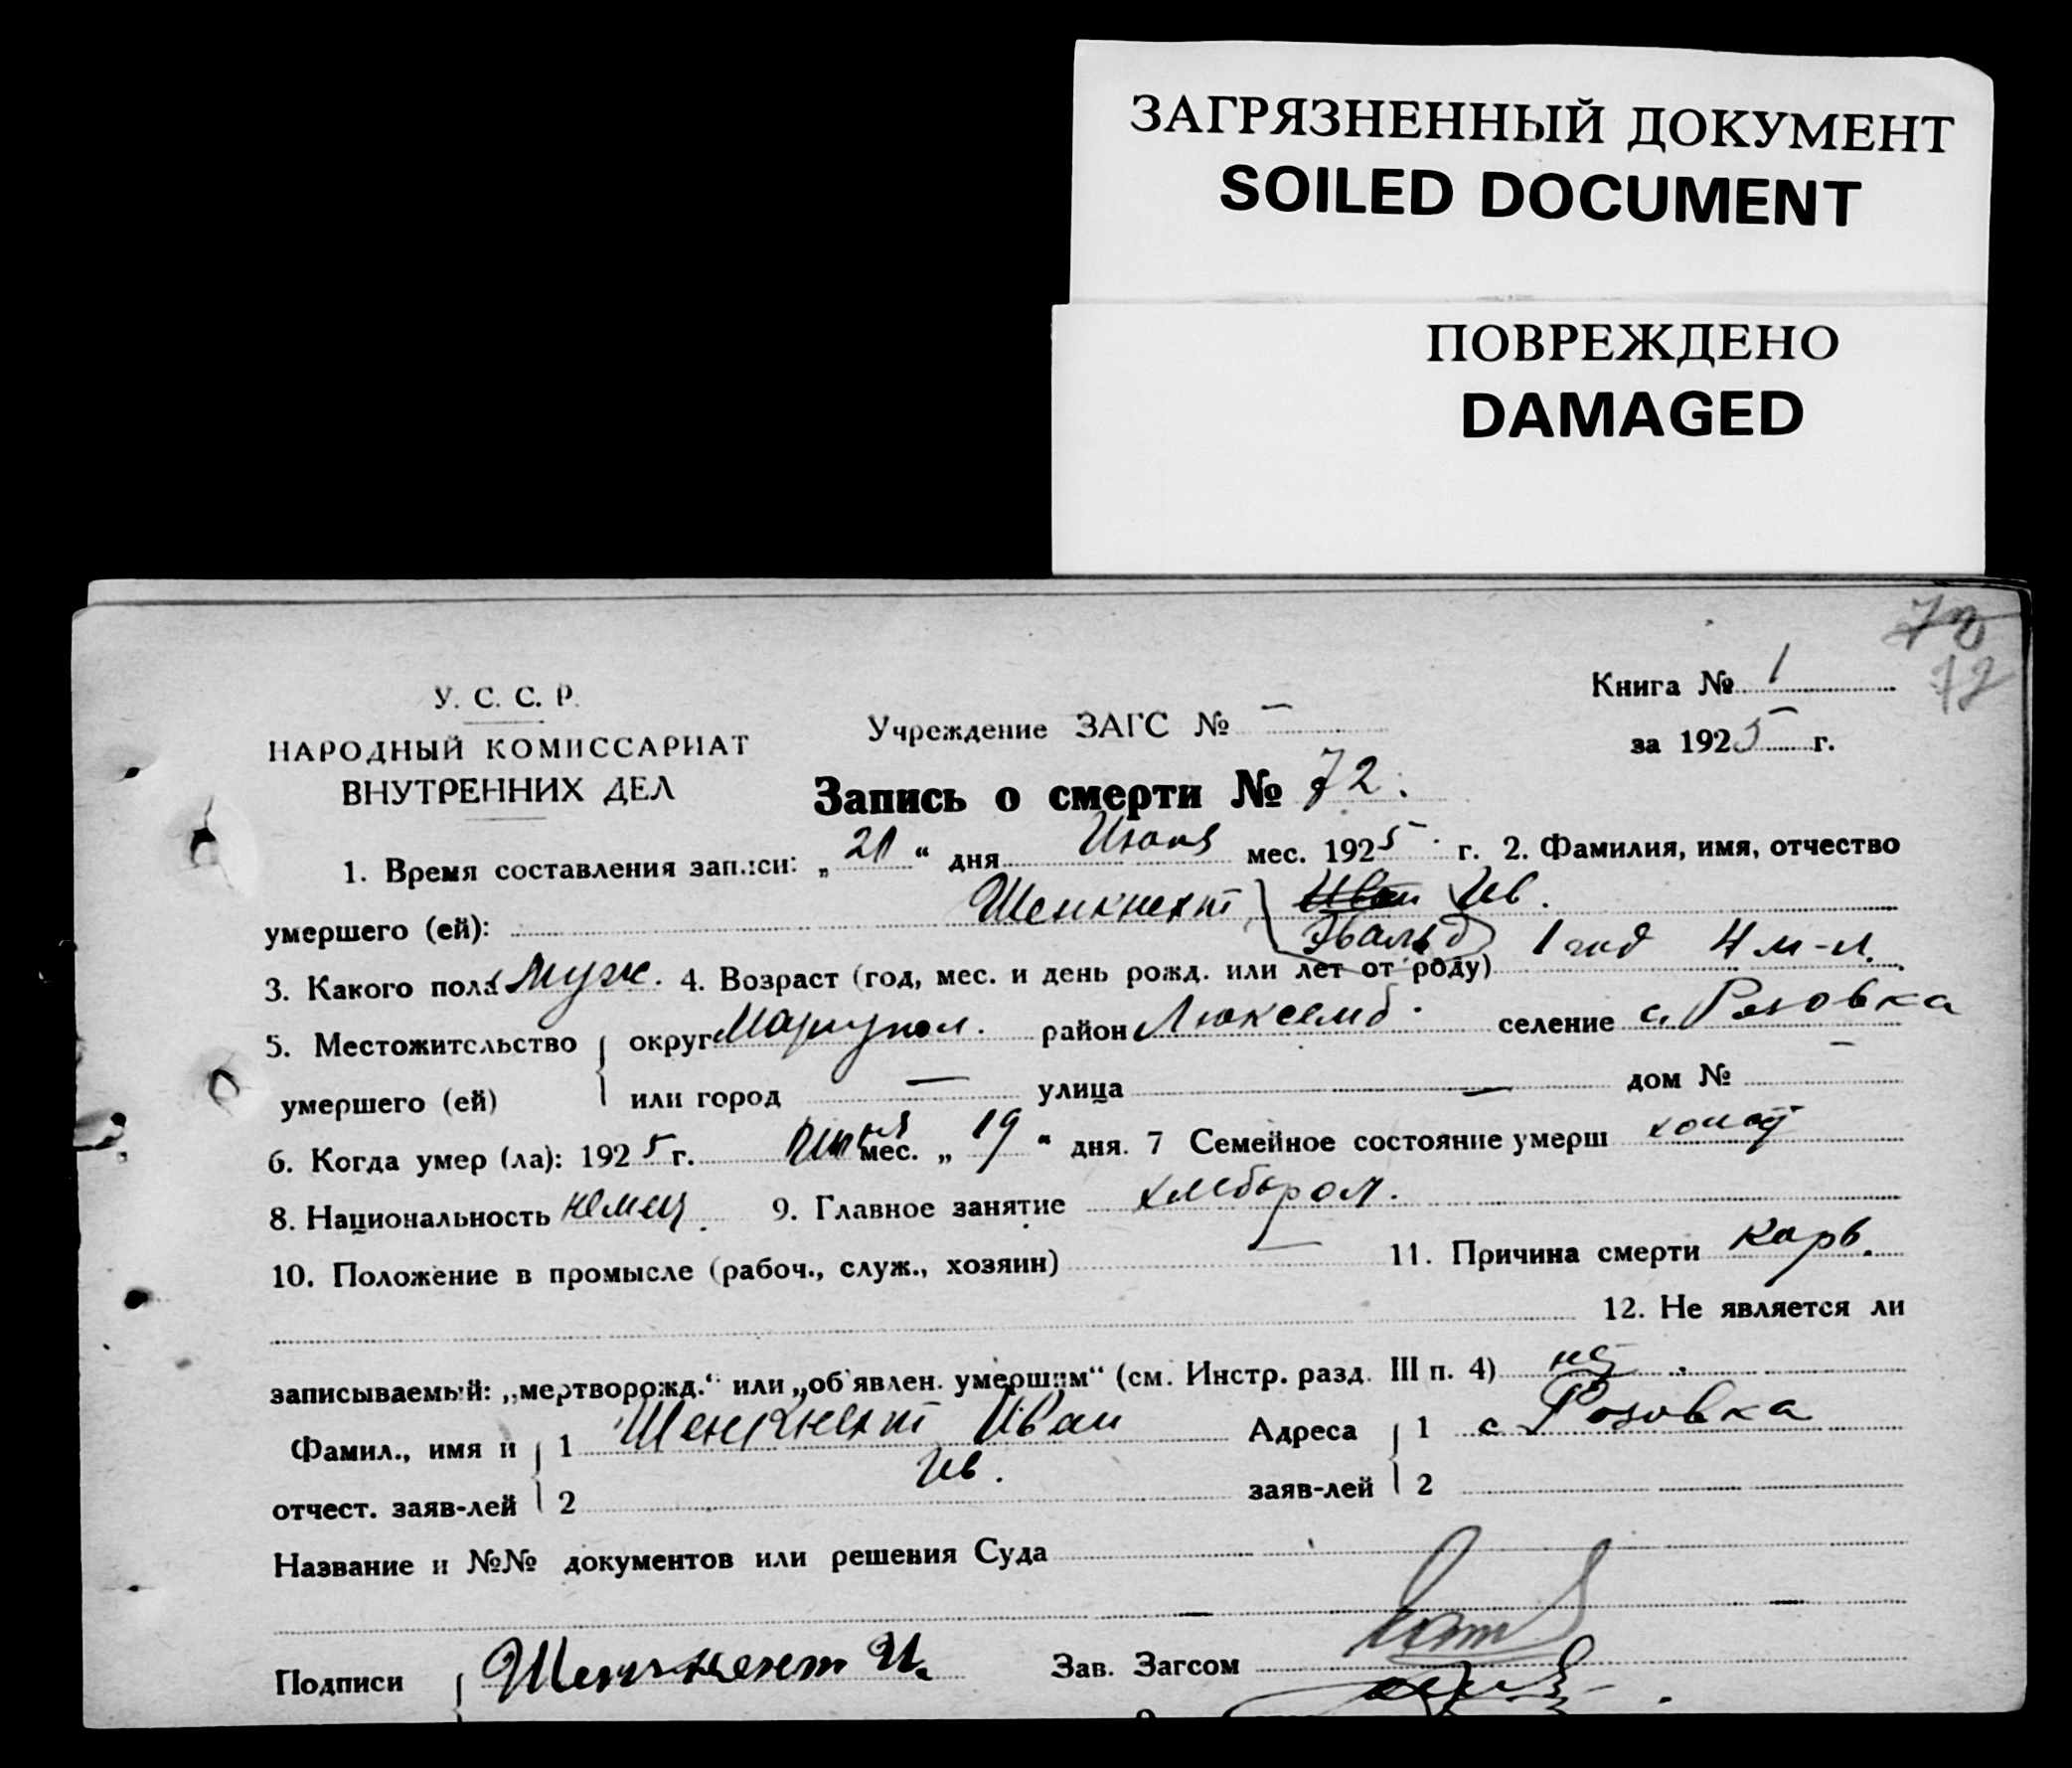 ЗАГРЯЗНЕННЫЙ ДОКУМЕНТ
SOILED DOCUMENT
ПОВРЕЖДЕНО
DAMAGED
70
72
У. С. С. Р.
Книга № 1
НАРОДНЫЙ КОМИССАРИАТ
ВНУТРЕННИХ ДЕЛ
Учреждение ЗАГС № —
за 1925 г.
Запись о смерти № 72.
1. Время составления записи: „ 21 “ дня Июня мес. 1925 г. 2. Фамилия, имя, отчество
умершего (ей): Шенкнехт Иван Ив.
Эвальд
3. Какого пола муж. 4. Возраст (год, мес. и день рожд. или лет от роду) 1 год 4 м-ц.
5. Местожительство умершего (ей) округ Мариупол. район Люксемб. селение с. Розовка
или город — улица — дом № —
6. Когда умер (ла): 1925 г. июня мес. „ 19 “ дня. 7 Семейное состояние умерш холост
8. Национальность немец. 9. Главное занятие хлебороб.
10. Положение в промысле (рабоч., служ., хозяин) — 11. Причина смерти Корь.
12. Не является ли
записываемый: „мертворожд.“ или „об'явлен. умершим“ (см. Инстр. разд. III п. 4) нет.
Фамил., имя и отчест. заяв-лей 1 Шенкнехт Иван Адреса заяв-лей 1 с Розовка
Ив.
2 2
Название и №№ документов или решения Суда
— —
Подписи Шенкнехт И. Зав. Загсом